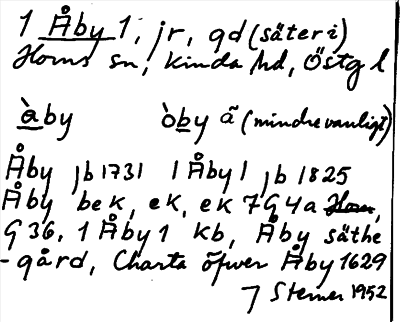 1 Åby 1, jr, gd (säteri)
Horns sn, Kinda hd, Östg l
àby òby ã (mindre vanligt)
Åby jb 1731 1 Åby 1 jb 1825
Åby bek, ek, ek 7G4a Horn,
G36. 1 Åby 1 kb, Åby säthe
-gård, Charta öfwer Åby 1629
7 Sterner 1952